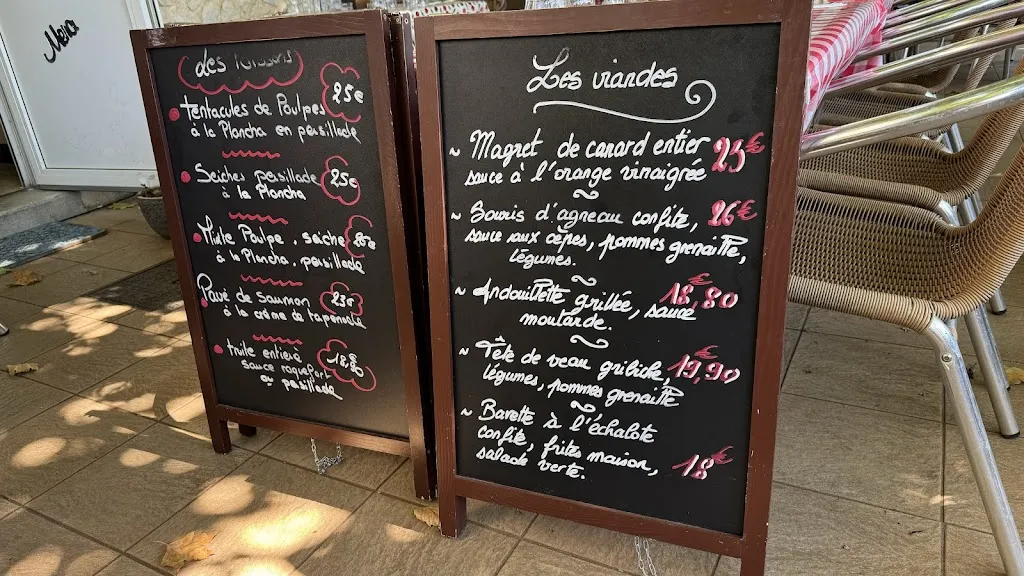 Merci
Les Poissons
25€
Tentacules de Poulpes
à la Plancha en persillade
Seiches persillade
25€
à la Plancha
Mixte Poulpe, seiche
à la Plancha, persillade
Pavé de Saumon
23€
à la crème de tapenade
truite entière
sauce roquefort
ou persillade
Les viandes
~ Magret de canard entier
23€
sauce à l'orange vinaigrée
~
~ Souris d'agneau confite,
26€
sauce aux cèpes, pommes grenaille,
légumes.
~
~ Andouillette grillée, sauce
18€,80
moutarde.
~
~ Tête de veau gribiche,
19€,90
légumes, pommes grenaille
~
~ Bavette à l'échalote
confite, frites maison,
18€
salade verte.